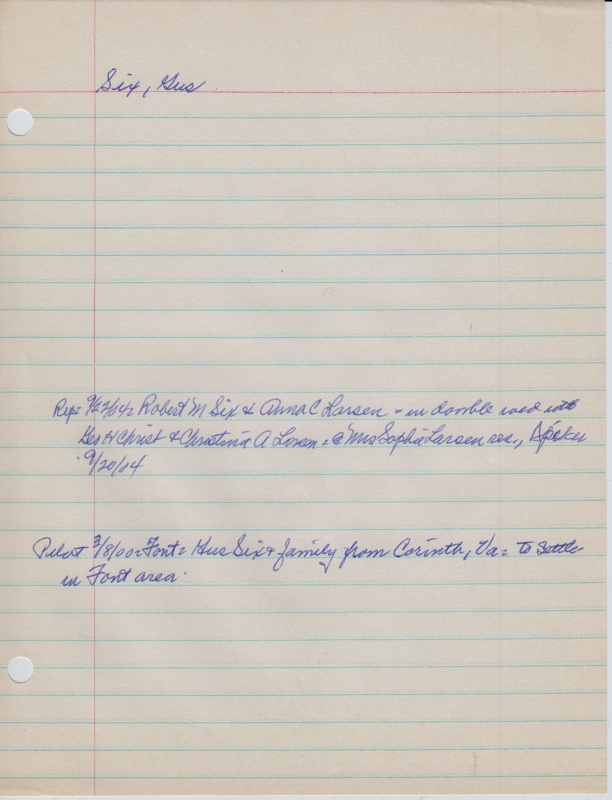 Six, Gus
Rep= 9/22/04= Robert M Six & Anna C Larsen - in double wed into
Geo H Christ & Christina A Larsen = @ Mrs Sophia Larsen res.,
9/20/04
Pilot 3/8/00= Font= Gus Six & family from Corinth, Va= to settle
in Font area.